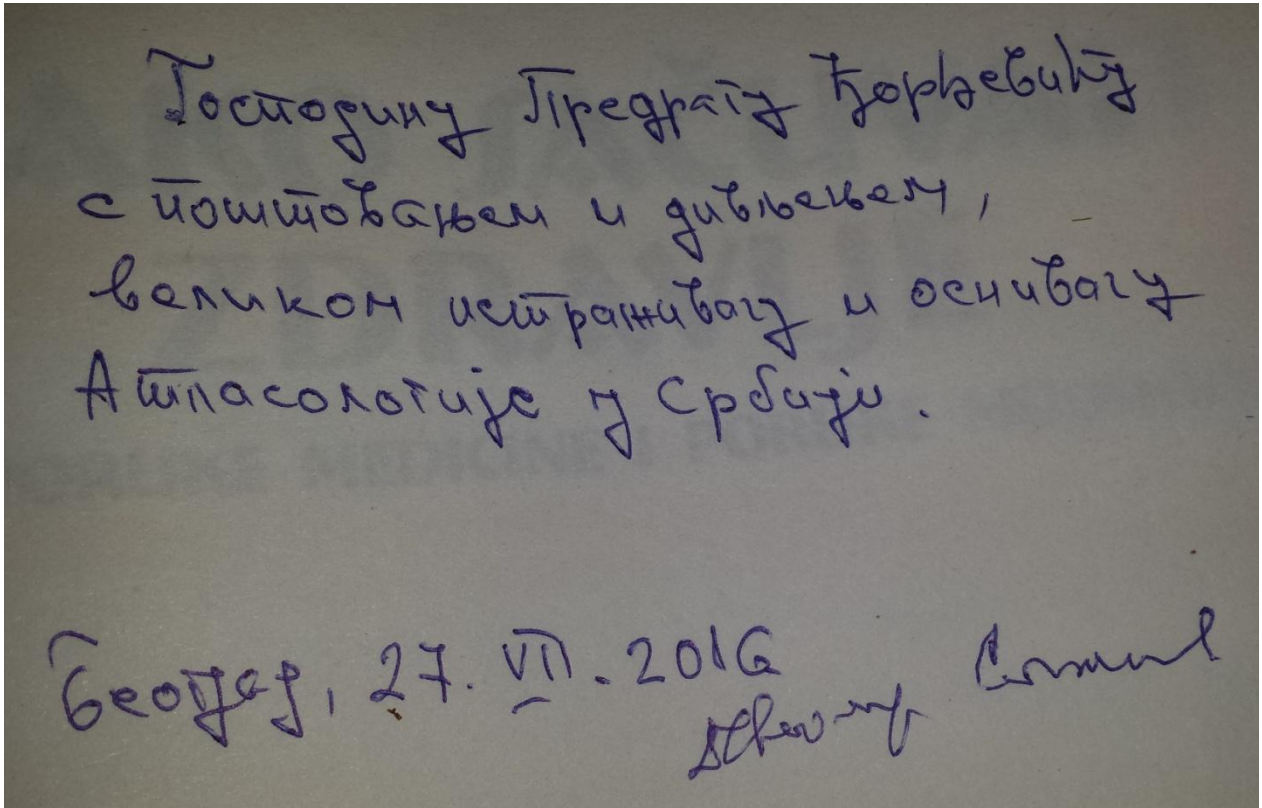 Господину Предрагу Ђорђевићу
с поштовањем и дивљењем,
великом истраживачу и оснивачу
Атласологије у Србији.
Београд, 27. VII. 2016